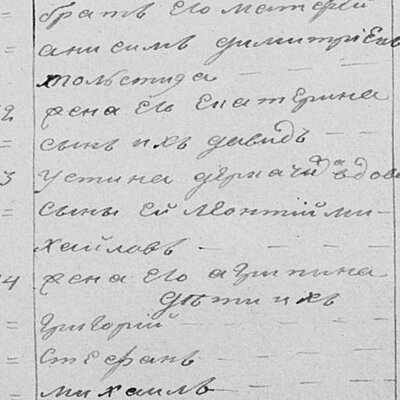 братъ его матфей
= анисимъ димитріев
толстида
2 жена ег екатерина
= сынъ ихъ давидъ
3 устина вдова
= сыны ей леонтій ми-
хайловъ
4 жена его агрипина
дѣти ихъ
= григорій
= стефанъ
= михаилъ